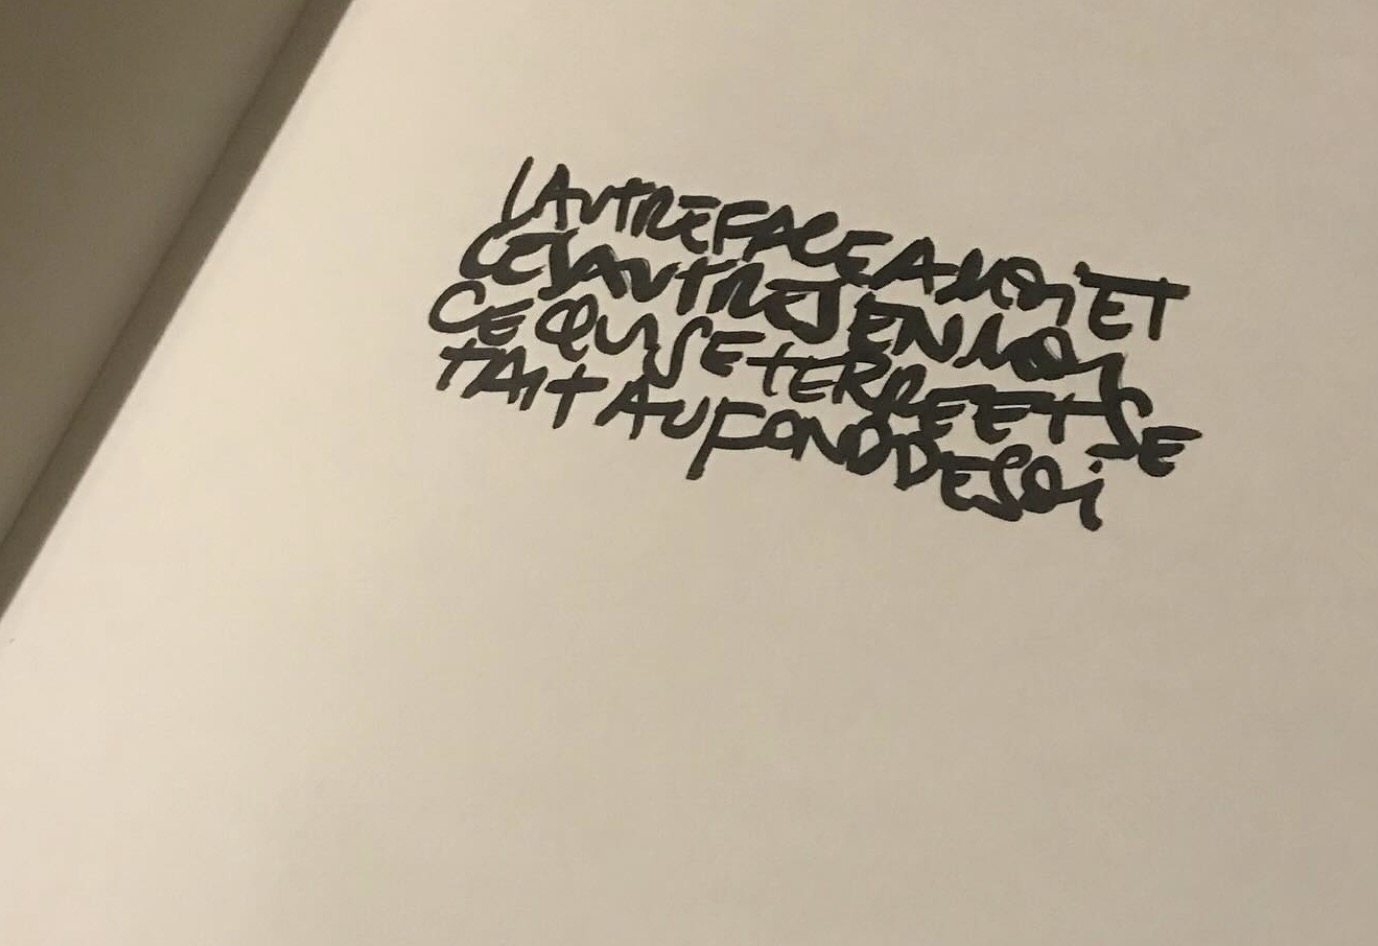 L'AUTRE FACE A MOI ET
CES AUTRES EN MOI
CE QUI SE TERRE ET SE
TAIT AU FOND DE SOI